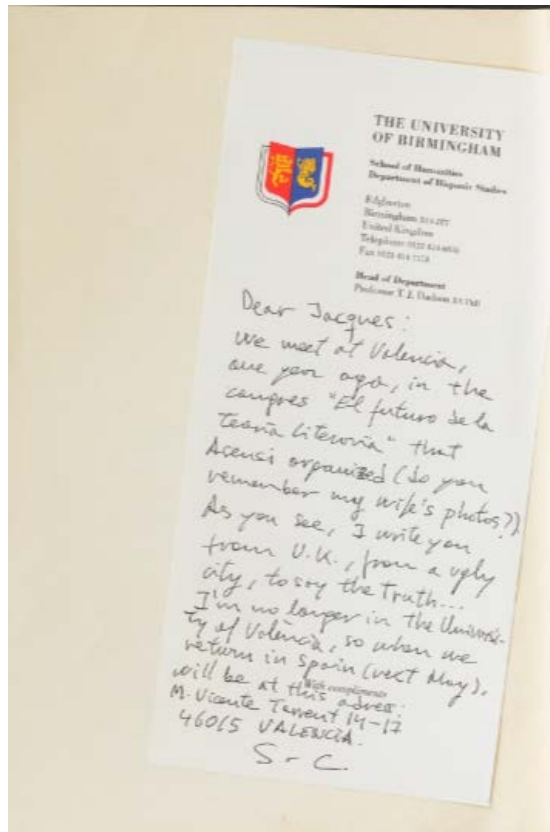 THE UNIVERSITY
OF BIRMINGHAM
School of Humanities
Department of Hispanic Studies
Edgbaston
Birmingham B15 2TT
United Kingdom
Telephone
Fax
Head of Department
Professor T. J. Dadson
Dear Jacques:
we meet at Valencia,
one year ago, in the
congres "El futuro de la
teoría literaria" that
Asensi organized (do you
remember my wife's photos?).
As you see, I write you
from U.K., from a ugly
city, to say the truth...
I'm no longer in the Universi-
ty of València, so when we
return in Spain (next May),
will be at this adress:
With compliments
M. Vicente Torrent 14-17
46015 VALENCIA.
S - C.